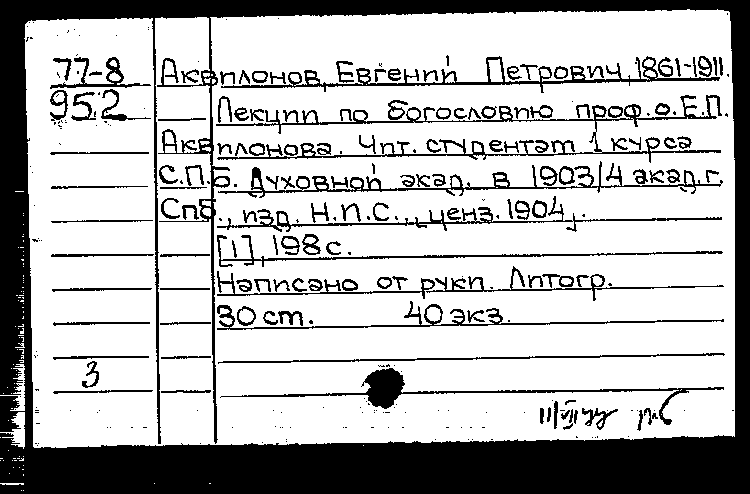 77-8 Аквилонов, Евгений Петрович, 1861-1911.
952 Лекции по богословию проф. о. Е.П.
Аквилонова. Чит. студентам 1 курса
С.П.Б. Духовной акад. в 1903/4 акад. г.
Спб., изд. Н.П.С., „ценз. 1904„.
[1], 198 с.
Написано от руки. Литогр.
30 ст. 40 экз.
3